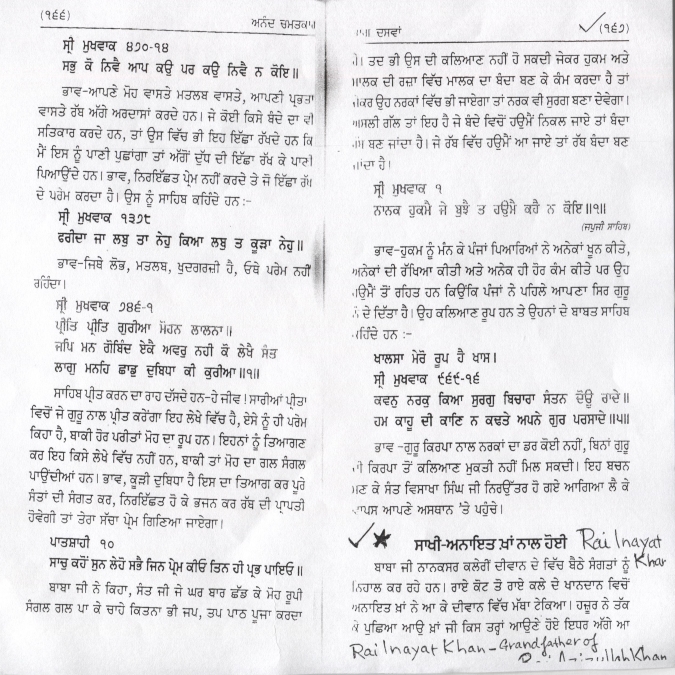 (੧੬੬)
ਅਨੰਦ ਚਮਤਕਾਰ
ਸ੍ਰੀ ਮੁਖਵਾਕ ੪੭੦-੧੪
ਸਭੁ ਕੋ ਨਿਵੈ ਆਪ ਕਉ ਪਰ ਕਉ ਨਿਵੈ ਨ ਕੋਇ॥
ਭਾਵ-ਆਪਣੇ ਮੋਹ ਵਾਸਤੇ ਮਤਲਬ ਵਾਸਤੇ, ਆਪਣੀ ਪ੍ਰਭਤਾ
ਵਾਸਤੇ ਰੱਬ ਅੱਗੇ ਅਰਦਾਸਾਂ ਕਰਦੇ ਹਨ। ਜੇ ਕੋਈ ਕਿਸੇ ਬੰਦੇ ਦਾ ਵੀ
ਸਤਿਕਾਰ ਕਰਦੇ ਹਨ, ਤਾਂ ਉਸ ਵਿੱਚ ਭੀ ਇਹ ਇੱਛਾ ਰੱਖਦੇ ਹਨ ਕਿ
ਮੈਂ ਇਸ ਨੂੰ ਪਾਣੀ ਪੁਛਾਂਗਾ ਤਾਂ ਅੱਗੋਂ ਦੁੱਧ ਦੀ ਇੱਛਾ ਰੱਖ ਕੇ ਪਾਣੀ
ਪਿਆਉਂਦੇ ਹਨ। ਭਾਵ, ਨਿਰਇੱਛਤ ਪ੍ਰੇਮ ਨਹੀਂ ਕਰਦੇ ਤੇ ਜੋ ਇੱਛਾ ਰੱਖ
ਕੇ ਪਰੇਮ ਕਰਦਾ ਹੈ। ਉਸ ਨੂੰ ਸਾਹਿਬ ਕਹਿੰਦੇ ਹਨ:-
ਸ੍ਰੀ ਮੁਖਵਾਕ ੧੩੭੮
ਫਰੀਦਾ ਜਾ ਲਬੁ ਤਾ ਨੇਹੁ ਕਿਆ ਲਬੁ ਤ ਕੂੜਾ ਨੇਹੁ॥
ਭਾਵ-ਜਿਥੇ ਲੋਭ, ਮਤਲਬ, ਖੁਦਗਰਜ਼ੀ ਹੈ, ਓਥੇ ਪਰੇਮ ਨਹੀਂ
ਰਹਿੰਦਾ।
ਸ੍ਰੀ ਮੁਖਵਾਕ ੭੪੬-੧
ਪ੍ਰੀਤਿ ਪ੍ਰੀਤਿ ਗੁਰੀਆ ਮੋਹਨ ਲਾਲਨਾ॥
ਜਪਿ ਮਨ ਗੋਬਿੰਦ ਏਕੈ ਅਵਰੁ ਨਹੀ ਕੋ ਲੇਖੈ ਸੰਤ
ਲਾਗੁ ਮਨਹਿ ਛਾਡੁ ਦੁਬਿਧਾ ਕੀ ਕੁਰੀਆ॥੧॥
ਸਾਹਿਬ ਪ੍ਰੀਤ ਕਰਨ ਦਾ ਰਾਹ ਦੱਸਦੇ ਹਨ-ਹੇ ਜੀਵ! ਸਾਰੀਆਂ ਪ੍ਰੀਤਾ
ਵਿਚੋਂ ਜੋ ਗੁਰੂ ਨਾਲ ਪ੍ਰੀਤ ਕਰੇਂਗਾ ਇਹ ਲੇਖੇ ਵਿੱਚ ਹੈ, ਏਸੇ ਨੂੰ ਹੀ ਪਰੇਮ
ਕਿਹਾ ਹੈ, ਬਾਕੀ ਹੋਰ ਪਰੀਤਾਂ ਮੋਹ ਦਾ ਰੂਪ ਹਨ। ਇਹਨਾਂ ਨੂੰ ਤਿਆਗਣ
ਕਰ ਇਹ ਕਿਸੇ ਲੇਖੇ ਵਿੱਚ ਨਹੀਂ ਹਨ, ਬਾਕੀ ਤਾਂ ਮੋਹ ਦਾ ਗਲ ਸੰਗਲ
ਪਾਉਂਦੀਆਂ ਹਨ। ਭਾਵ, ਕੂੜੀ ਦੁਬਿਧਾ ਹੈ ਇਸ ਦਾ ਤਿਆਗ ਕਰ ਪੂਰੇ
ਸੰਤਾਂ ਦੀ ਸੰਗਤ ਕਰ, ਨਿਰਇੱਛਤ ਹੋ ਕੇ ਭਜਨ ਕਰ ਰੱਬ ਦੀ ਪ੍ਰਾਪਤੀ
ਹੋਵੇਗੀ ਤਾਂ ਤੇਰਾ ਸੱਚਾ ਪ੍ਰੇਮ ਗਿਣਿਆ ਜਾਏਗਾ।
ਪਾਤਸ਼ਾਹੀ ੧੦
ਸਾਚੁ ਕਹੋਂ ਸੁਨ ਲੇਹੋ ਸਭੈ ਜਿਨ ਪ੍ਰੇਮ ਕੀਓ ਤਿਨ ਹੀ ਪ੍ਰਭ ਪਾਇਓ॥
ਬਾਬਾ ਜੀ ਨੇ ਕਿਹਾ, ਸੰਤ ਜੀ ਜੇ ਘਰ ਬਾਰ ਛੱਡ ਕੇ ਮੋਹ ਰੂਪੀ
ਸੰਗਲ ਗਲ ਪਾ ਕੇ ਚਾਹੇ ਕਿਤਨਾ ਭੀ ਜਪ, ਤਪ ਪਾਠ ਪੂਜਾ ਕਰਦਾ
ਦਸਵਾਂ
(੧੬੭)
ਤਦ ਭੀ ਉਸ ਦੀ ਕਲਿਆਣ ਨਹੀਂ ਹੋ ਸਕਦੀ ਜੇਕਰ ਹੁਕਮ ਅਤੇ
ਮਾਲਕ ਦੀ ਰਜ਼ਾ ਵਿੱਚ ਮਾਲਕ ਦਾ ਬੰਦਾ ਬਣ ਕੇ ਕੰਮ ਕਰਦਾ ਹੈ ਤਾਂ
ਜੇਕਰ ਉਹ ਨਰਕਾਂ ਵਿੱਚ ਭੀ ਜਾਏਗਾ ਤਾਂ ਨਰਕ ਵੀ ਸੁਰਗ ਬਣਾ ਦੇਵੇਗਾ।
ਅਸਲੀ ਗੱਲ ਤਾਂ ਇਹ ਹੈ ਜੇ ਬੰਦੇ ਵਿਚੋਂ ਹਉਮੈਂ ਨਿਕਲ ਜਾਏ ਤਾਂ ਬੰਦਾ
ਬਣ ਜਾਂਦਾ ਹੈ। ਜੇ ਰੱਬ ਵਿੱਚ ਹਉਮੈਂ ਆ ਜਾਏ ਤਾਂ ਰੱਬ ਬੰਦਾ ਬਣ
ਜਾਂਦਾ ਹੈ!
ਸ੍ਰੀ ਮੁਖਵਾਕ ੧
ਨਾਨਕ ਹੁਕਮੈ ਜੇ ਬੁਝੈ ਤ ਹਉਮੈ ਕਹੈ ਨ ਕੋਇ॥੧॥
(ਜਪੁਜੀ ਸਾਹਿਬ)
ਭਾਵ-ਹੁਕਮ ਨੂੰ ਮੰਨ ਕੇ ਪੰਜਾਂ ਪਿਆਰਿਆਂ ਨੇ ਅਨੇਕਾਂ ਖੂਨ ਕੀਤੇ,
ਅਨੇਕਾਂ ਦੀ ਰੱਖਿਆ ਕੀਤੀ ਅਤੇ ਅਨੇਕ ਹੀ ਹੋਰ ਕੰਮ ਕੀਤੇ ਪਰ ਉਹ
ਹਉਮੈਂ ਤੋਂ ਰਹਿਤ ਹਨ ਕਿਉਂਕਿ ਪੰਜਾਂ ਨੇ ਪਹਿਲੇ ਆਪਣਾ ਸਿਰ ਗੁਰੂ
ਨੂੰ ਦੇ ਦਿੱਤਾ ਹੈ। ਉਹ ਕਲਿਆਣ ਰੂਪ ਹਨ ਤੇ ਉਹਨਾਂ ਦੇ ਬਾਬਤ ਸਾਹਿਬ
ਕਹਿੰਦੇ ਹਨ :-
ਖਾਲਸਾ ਮੇਰੋ ਰੂਪ ਹੈ ਖਾਸ।
ਸ੍ਰੀ ਮੁਖਵਾਕ ੯੬੯-੧੬
ਕਵਨੁ ਨਰਕੁ ਕਿਆ ਸੁਰਗੁ ਬਿਚਾਰਾ ਸੰਤਨ ਦੋਊ ਰਾਦੇ॥
ਹਮ ਕਾਹੂ ਦੀ ਕਾਣਿ ਨ ਕਢਤੇ ਅਪਨੇ ਗੁਰ ਪਰਸਾਦੇ॥੫॥
ਭਾਵ -ਗੁਰੂ ਕਿਰਪਾ ਨਾਲ ਨਰਕਾਂ ਦਾ ਡਰ ਕੋਈ ਨਹੀਂ, ਬਿਨਾਂ ਗੁਰੂ
ਦੀ ਕਿਰਪਾ ਤੋਂ ਕਲਿਆਣ ਮੁਕਤੀ ਨਹੀਂ ਮਿਲ ਸਕਦੀ। ਇਹ ਬਚਨ
ਸੁਣ ਕੇ ਸੰਤ ਵਿਸਾਖਾ ਸਿੰਘ ਜੀ ਨਿਰਉੱਤਰ ਹੋ ਗਏ ਆਗਿਆ ਲੈ ਕੇ
ਵਾਪਸ ਆਪਣੇ ਅਸਥਾਨ 'ਤੇ ਪਹੁੰਚੇ।
ਸਾਖੀ-ਅਨਾਇਤ ਖ਼ਾਂ ਨਾਲ ਹੋਈ Rai Inayat Khan
ਬਾਬਾ ਜੀ ਨਾਨਕਸਰ ਕਲੇਰੀਂ ਦੀਵਾਨ ਦੇ ਵਿੱਚ ਬੈਠੇ ਸੰਗਤਾਂ ਨੂੰ
ਨਿਹਾਲ ਕਰ ਰਹੇ ਹਨ। ਰਾਏ ਕੋਟ ਤੋਂ ਰਾਏ ਕਲੇ ਦੇ ਖਾਨਦਾਨ ਵਿਚੋਂ
ਅਨਾਇਤ ਖ਼ਾਂ ਨੇ ਆ ਕੇ ਦੀਵਾਨ ਵਿੱਚ ਮੱਥਾ ਟੇਕਿਆ। ਹਜ਼ੂਰ ਨੇ ਤੱਕ
ਕੇ ਪੁਛਿਆ ਆਉ ਖ਼ਾਂ ਜੀ ਕਿਸ ਤਰ੍ਹਾਂ ਆਉਣੇ ਹੋਏ ਇਧਰ ਅੱਗੇ ਆ
Rai Inayat Khan - Grandfather of
Khan